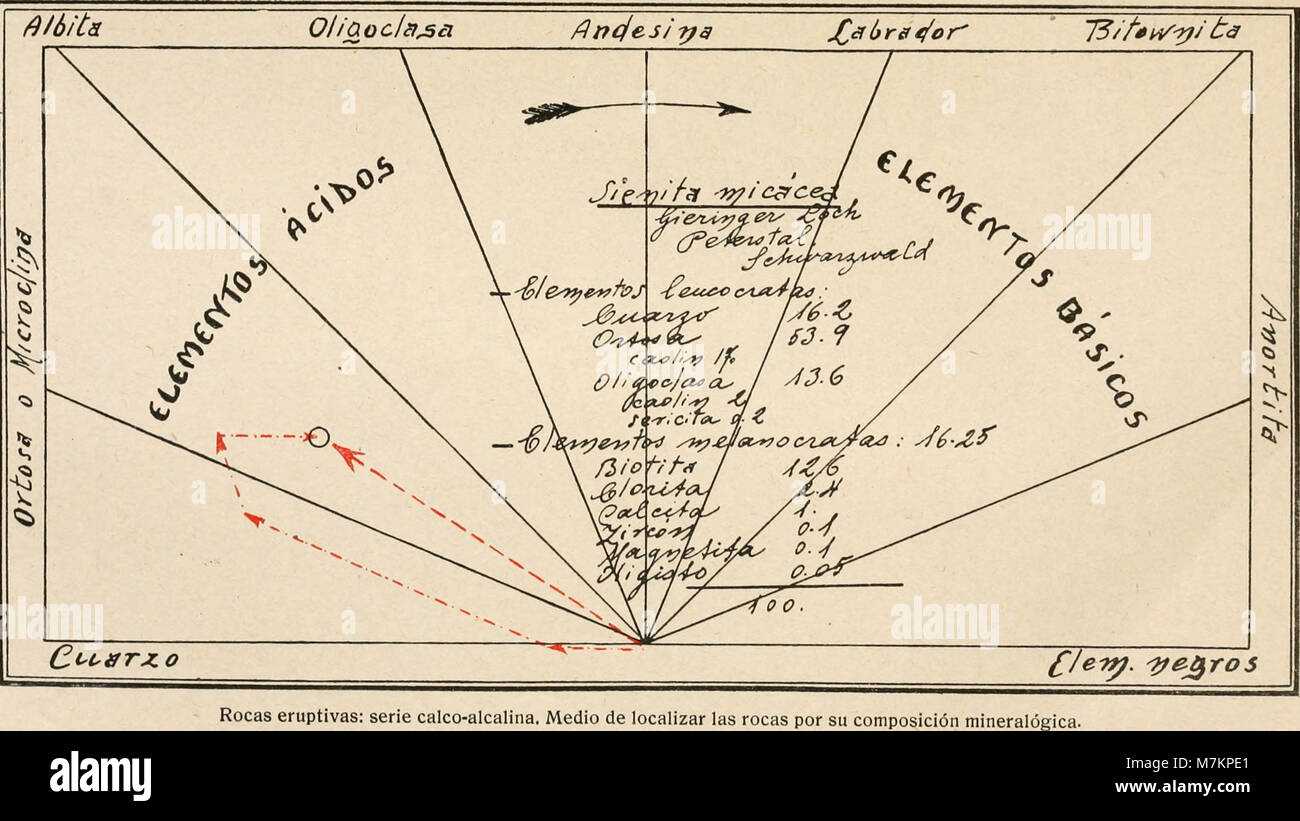 Albita Oligoclasa Andesina Labrador Bitownita
ELEMENTOS ÁCIDOS
ELEMENTOS BÁSICOS
Ortosa o Microclina
Anortita
Sienita micácea
Gieringer Loch
Peterstal
Schwarzwald
— Elementos leucocratas:
Cuarzo 16.2
Ortosa 53.9
caolin 1%
Oligoclasa 13.6
caolin 2
sericita 0.2
— Elementos melanocratas: 16.25
Biotita 12,6
Clorita 2.4
Calcita 1.
Zircón 0.1
Magnetita 0.1
Oligisto 0.05
100.
Cuarzo Elem. negros
Rocas eruptivas: serie calco-alcalina. Medio de localizar las rocas por su composición mineralógica.
alamy
alamy
Image ID: M7KPE1
www.alamy.com